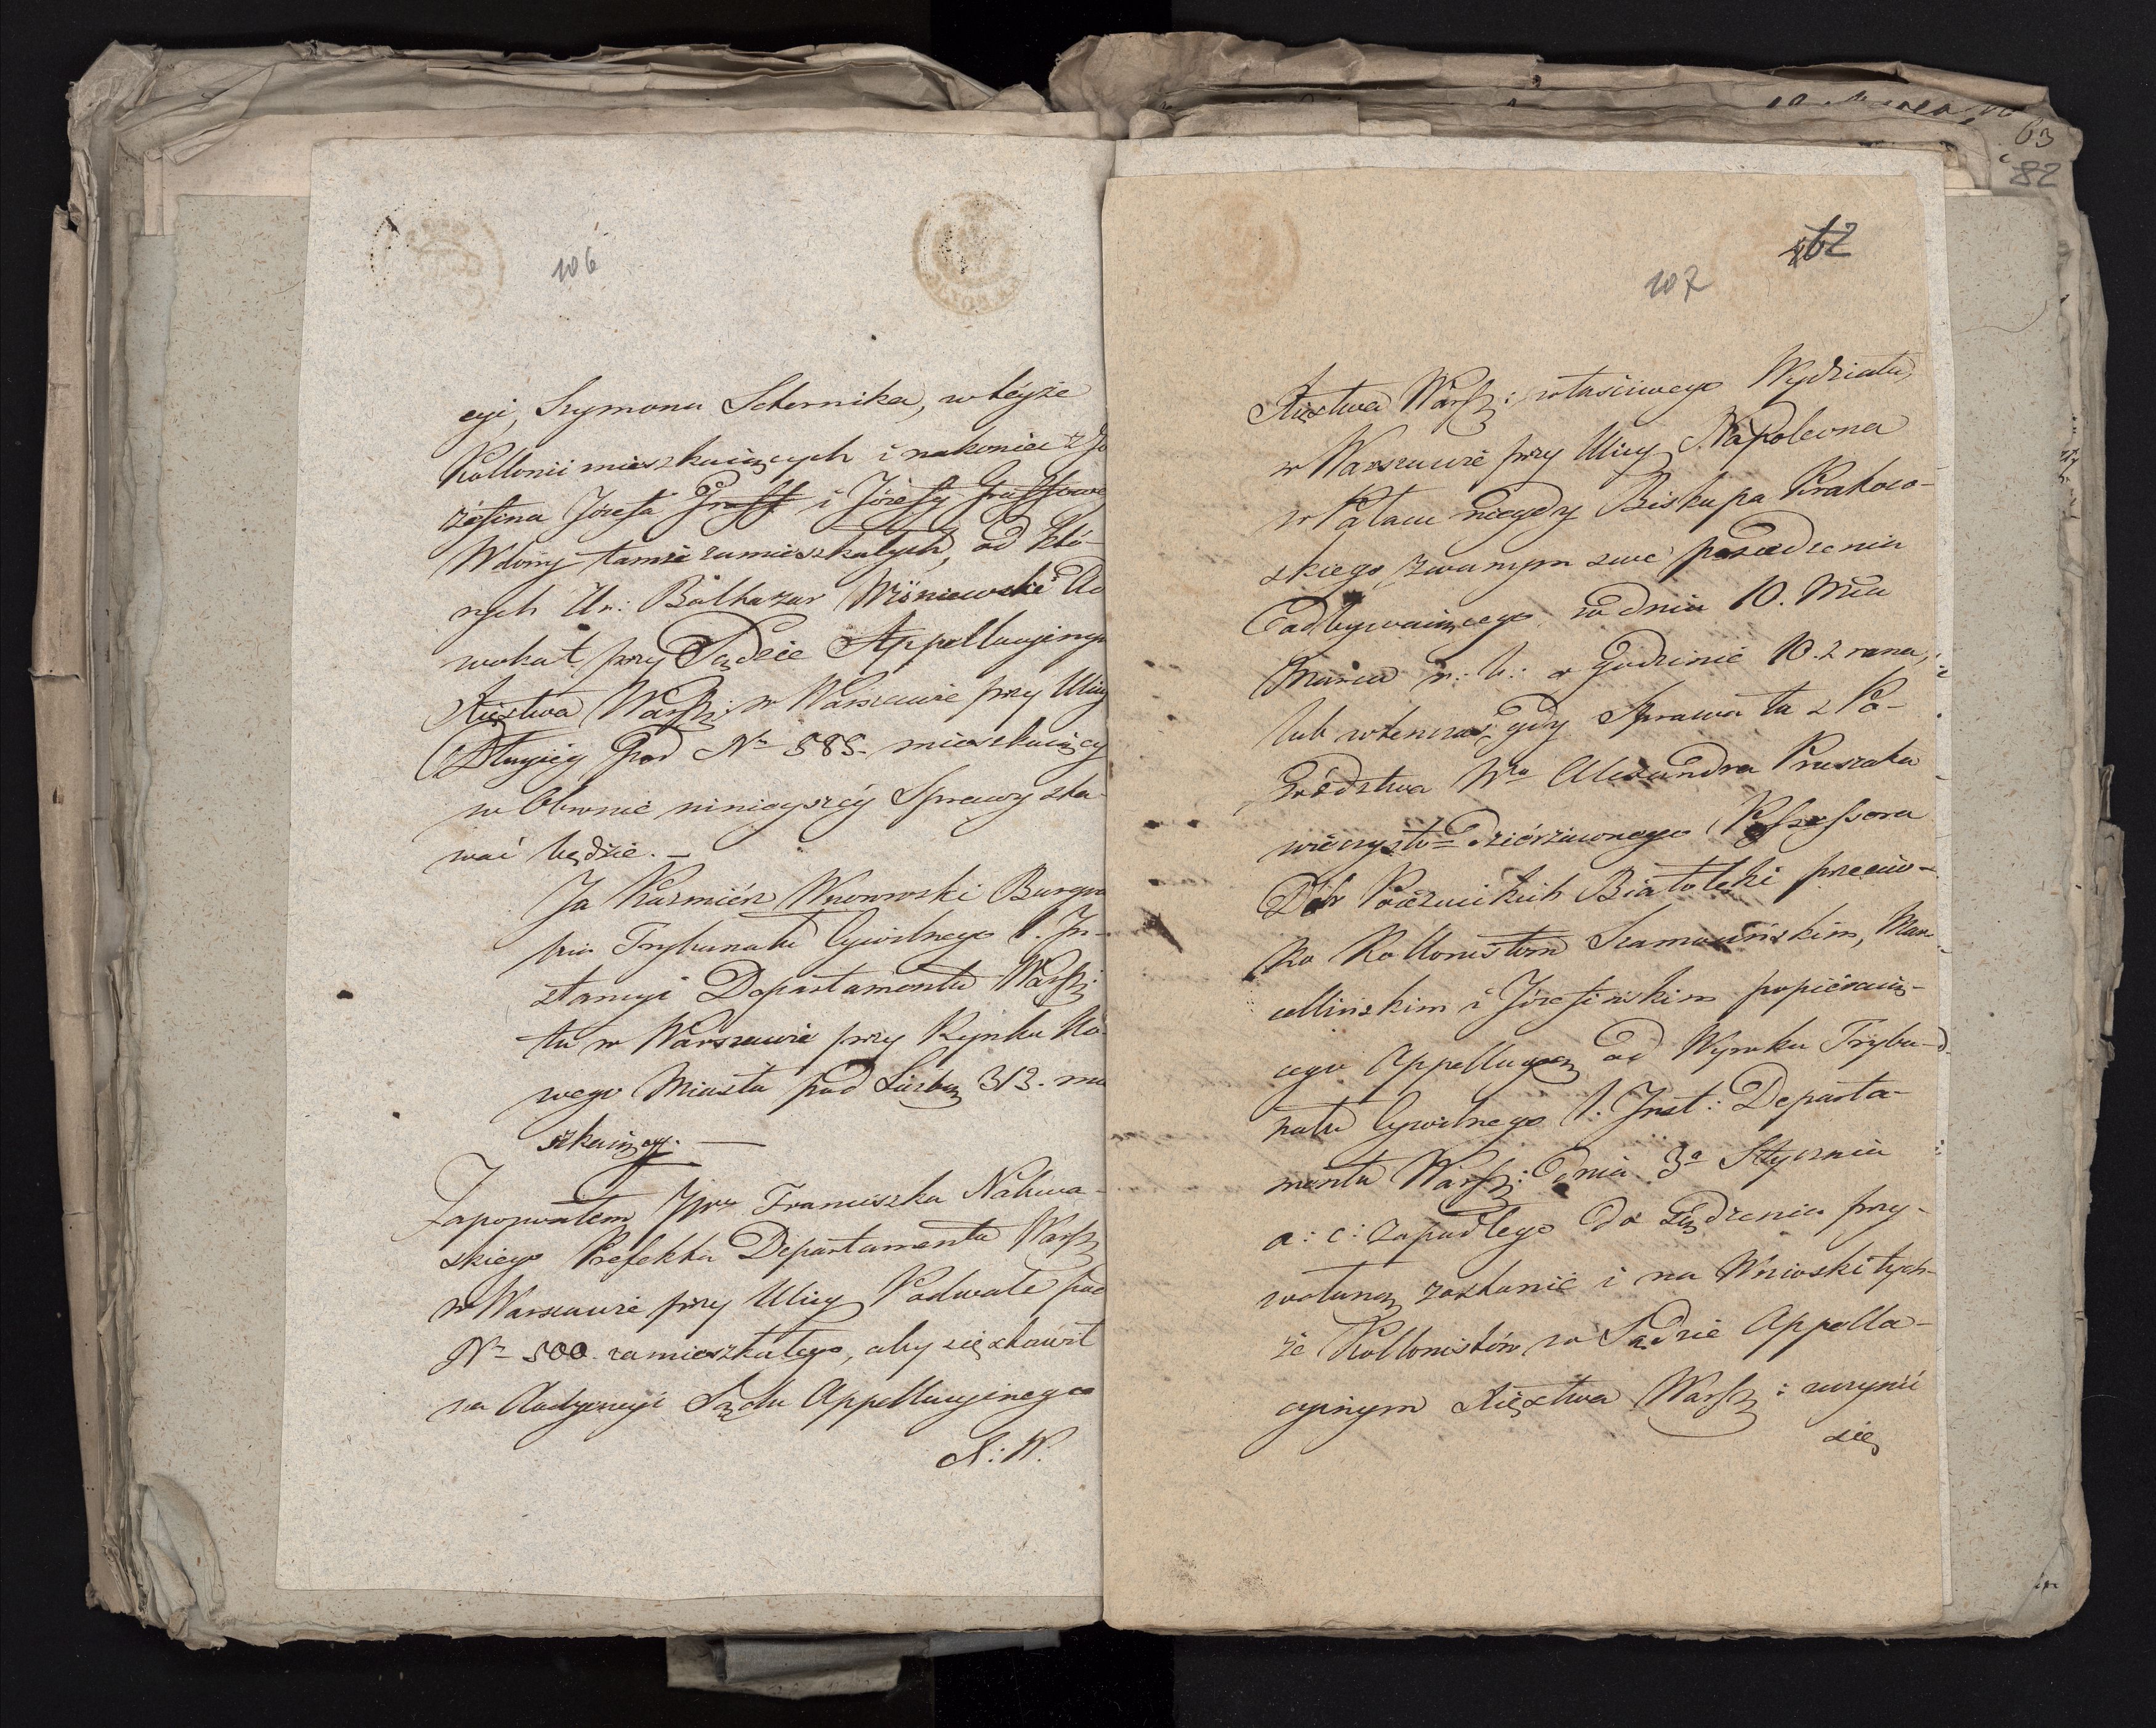 106
cyi, Szymona Schernika, w teyże
Kollonii mieszkaiących i nakoniec z Jo
zefina Józefa Graff i Józefy Graffowey
Wdowy tamże zamieszkałych, od któ-
rych Ur: Balthazar Wiśniewski Ad
wokat przy Sądzie Appellacyinym
Xięstwa Warsz: w Warszawie przy Ulicy
Długiey Pod No 585. mieszkaiący
w Obronie ninieyszéy Sprawy sta
wać będzie. –
Ja Kazmierz Wronowski Burgra
bia Trybunału Cywilnego 1. In-
stancyi Departamentu Warsz:
tu w Warszawie przy Rynku No
wego Miasta pod Liczbą 313. mie
szkaiący. –
Zapozwałem JWo Franciszka Nakwa-
skiego Prefekta Departamentu Warsz
w Warszawie przy Ulicy Podwale pod
No 500. zamieszkałego, aby się stawił
na Audyencyi Sądu Appellacyinego
X: W.
63
82
62
107
Xięstwa Warsz: właściwego Wydziału,
w Warszawie przy Ulicy Napoleona
w Pałacu niegdy Biskupa Krakow-
skiego zwanym swe posiedzenia
Odbywaiącego w dniu 10. Mca
Marca r: b: o Godzinie 10. z rana,
lub wtenczas gdy Sprawa ta z Po-
wództwa Wo Alexandra Pruszaka
wieczysto = Dzierżawnego Possessora
Dóbr Białołęki przeciw-
ko Kollonistom Szamocińskim, Mar
cellińskim i Józefińskim popieraią-
cego Appellacyą od Wyroku Trybu-
nału Cywilnego 1. Inst: Departa-
mentu Warsz: Dnia 3a Stycznia
a: c: zapadłego do sądzenia przy-
wołaną zostanie i na Wnioski tych-
że Kollonistów w Sądzie Appella-
cyinym Xięstwa Warsz: uczynić
się